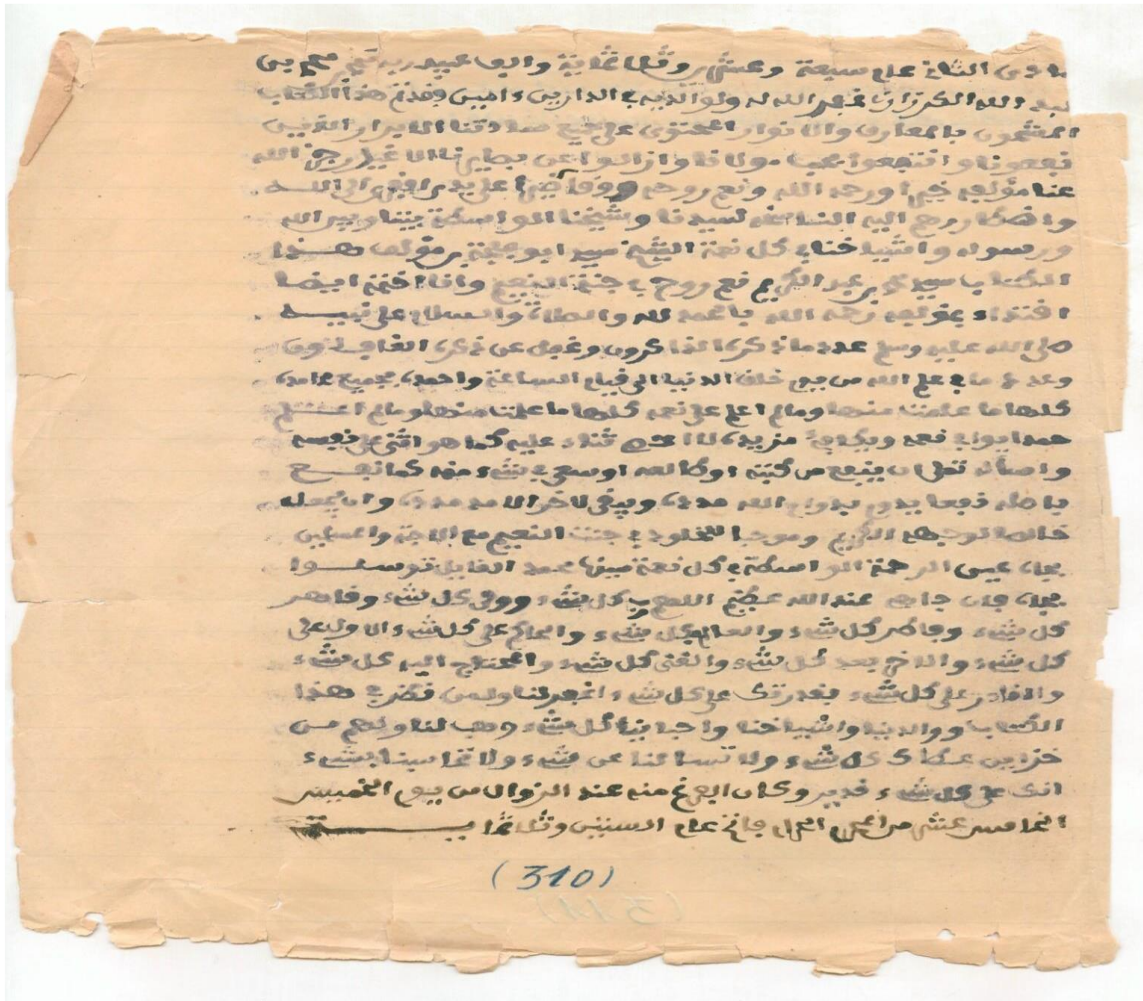 الثاني عام سبعة وعشرين وثلاثماية والف عبيد ربه محمد بن
عبد الله الكرزازي غفر الله له ولوالديه في الدارين ءامين وقد تم هذا الكتاب
المشحون بالمعارف والانوار المحتوى على جميع ساداتنا الابرار الذين
نفعونا وانتفعوا بحب مولانا وازالوا عن بصايرنا الاغيار رجزى الله
عنا مؤلفه خيرا ورحم الله ونعم روحه على يد افقر الى اللـه
واضعاف وروح اليه لسيدنا وشيخنا الواسطة بيننا وبين الله
ورسوله واشياخنا في كل نعمة الشيخ سيدي ابو بن مؤلف هـذا
الكتاب سيدي محمد بن عبد الكريم نعم روحه في جنة النعيم وانا اختمه ايضا
اقتداء بمؤلفه رحمه الله بالحمد لله والصلاة والسلام على نبيـه
صلى الله عليه وسلم عدد ما ذكره الذاكرون وغفل عن ذكره الغافلون
وعدد ما في علم الله من يوم خلق الدنيا الى قيام الساعة واحمده بجميع محامده
كلها ما علمت منها وما لم اعلم على نعمه كلها ما علمت منها وما لم اعـلم
حمدا يوافي نعمه ويكافئ مزيده لا احصي ثناء عليه كما هو اثنى على نفسه
واسأله تعلى ان ينفع من كتبه او طالعه او سعى في شيء منه كما نفـع
باصله نفعا يدوم بدوام الله مدده ويبقى لاخر الامد مدده وان يجعله
خالصا لوجهه الكريم وموجبا للخلود في جنت النعيم مع الاحبة والمسلمين
بجاه عين الرحمة الواسطة في كل نعمة سيدنا محمد القايل توسلـوا
بجاه فان جاهي عند الله عظيم اللهم رب كل شيء وولي كل شيء وقاهر
كل شيء وفاطر كل شيء والعالم بكل شيء والحاكم على كل شيء الاول على
كل شيء والاخر بعد كل شيء والغني كل شيء والمحتاج اليه كل شيء
والقادر على كل شيء بقدرتك على كل شيء اغفر لنا ولمن نظر في هذا
الكتاب ووالدينا واشياخنا واحبابنا كل شيء وهب لنا ولهم من
خزاين عطاك كل شيء ولا تسالنا عن شيء ولا تحاسبنا بشيء
انك على كل شيء قدير وكان الفرغ منه عند الزوال من يوم الخميس
الخامس عشر من المحرم الحرام فاتح عام الستين وثلاثمايـة
(310)